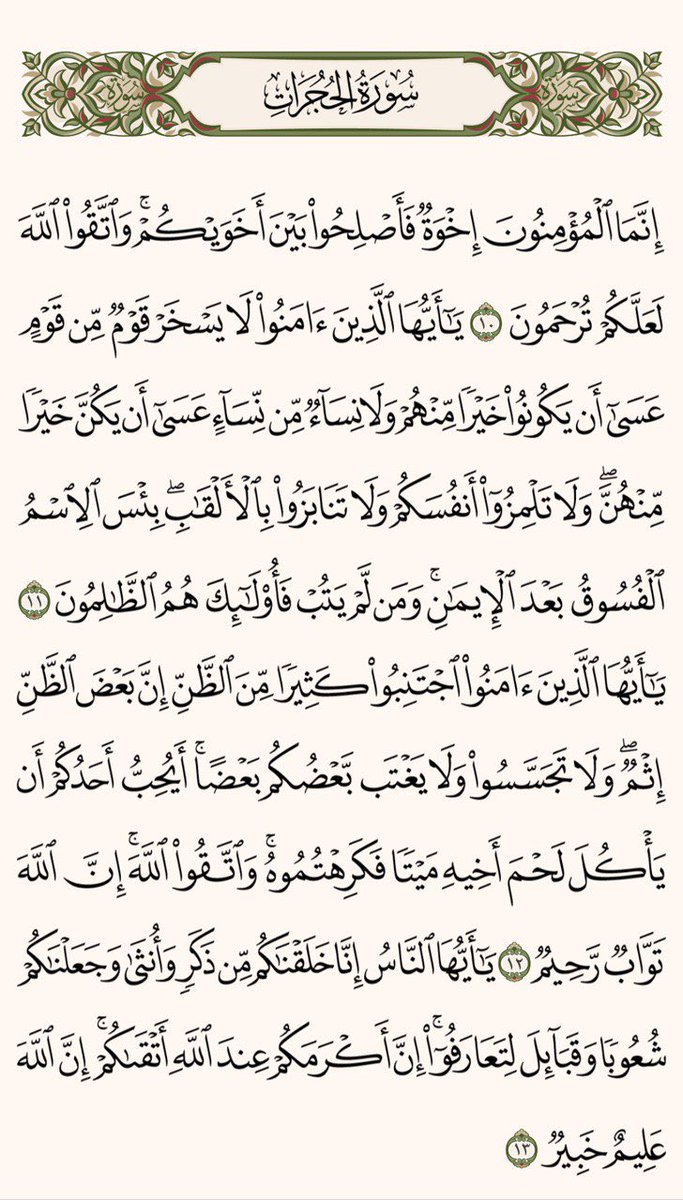 سُورَةُ الحُجُرَاتِ
إِنَّمَا ٱلۡمُؤۡمِنُونَ إِخۡوَةٞ فَأَصۡلِحُواْ بَيۡنَ أَخَوَيۡكُمۡۚ وَٱتَّقُواْ ٱللَّهَ
لَعَلَّكُمۡ تُرۡحَمُونَ ١٠ يَـٰٓأَيُّهَا ٱلَّذِينَ ءَامَنُواْ لَا يَسۡخَرۡ قَوۡمٞ مِّن قَوۡمٍ
عَسَىٰٓ أَن يَكُونُواْ خَيۡرٗا مِّنۡهُمۡ وَلَا نِسَآءٞ مِّن نِّسَآءٍ عَسَىٰٓ أَن يَكُنَّ خَيۡرٗا
مِّنۡهُنَّۖ وَلَا تَلۡمِزُوٓاْ أَنفُسَكُمۡ وَلَا تَنَابَزُواْ بِٱلۡأَلۡقَٰبِۖ بِئۡسَ ٱلِٱسۡمُ
ٱلۡفُسُوقُ بَعۡدَ ٱلۡإِيمَٰنِۚ وَمَن لَّمۡ يَتُبۡ فَأُوْلَـٰٓئِكَ هُمُ ٱلظَّـٰلِمُونَ ١١
يَـٰٓأَيُّهَا ٱلَّذِينَ ءَامَنُواْ ٱجۡتَنِبُواْ كَثِيرٗا مِّنَ ٱلظَّنِّ إِنَّ بَعۡضَ ٱلظَّنِّ
إِثۡمٞۖ وَلَا تَجَسَّسُواْ وَلَا يَغۡتَب بَّعۡضُكُم بَعۡضًاۚ أَيُحِبُّ أَحَدُكُمۡ أَن
يَأۡكُلَ لَحۡمَ أَخِيهِ مَيۡتٗا فَكَرِهۡتُمُوهُۚ وَٱتَّقُواْ ٱللَّهَۚ إِنَّ ٱللَّهَ
تَوَّابٞ رَّحِيمٞ ١٢ يَـٰٓأَيُّهَا ٱلنَّاسُ إِنَّا خَلَقۡنَٰكُم مِّن ذَكَرٖ وَأُنثَىٰ وَجَعَلۡنَٰكُمۡ
شُعُوبٗا وَقَبَآئِلَ لِتَعَارَفُوٓاْۚ إِنَّ أَكۡرَمَكُمۡ عِندَ ٱللَّهِ أَتۡقَىٰكُمۡۚ إِنَّ ٱللَّهَ
عَلِيمٌ خَبِيرٞ ١٣